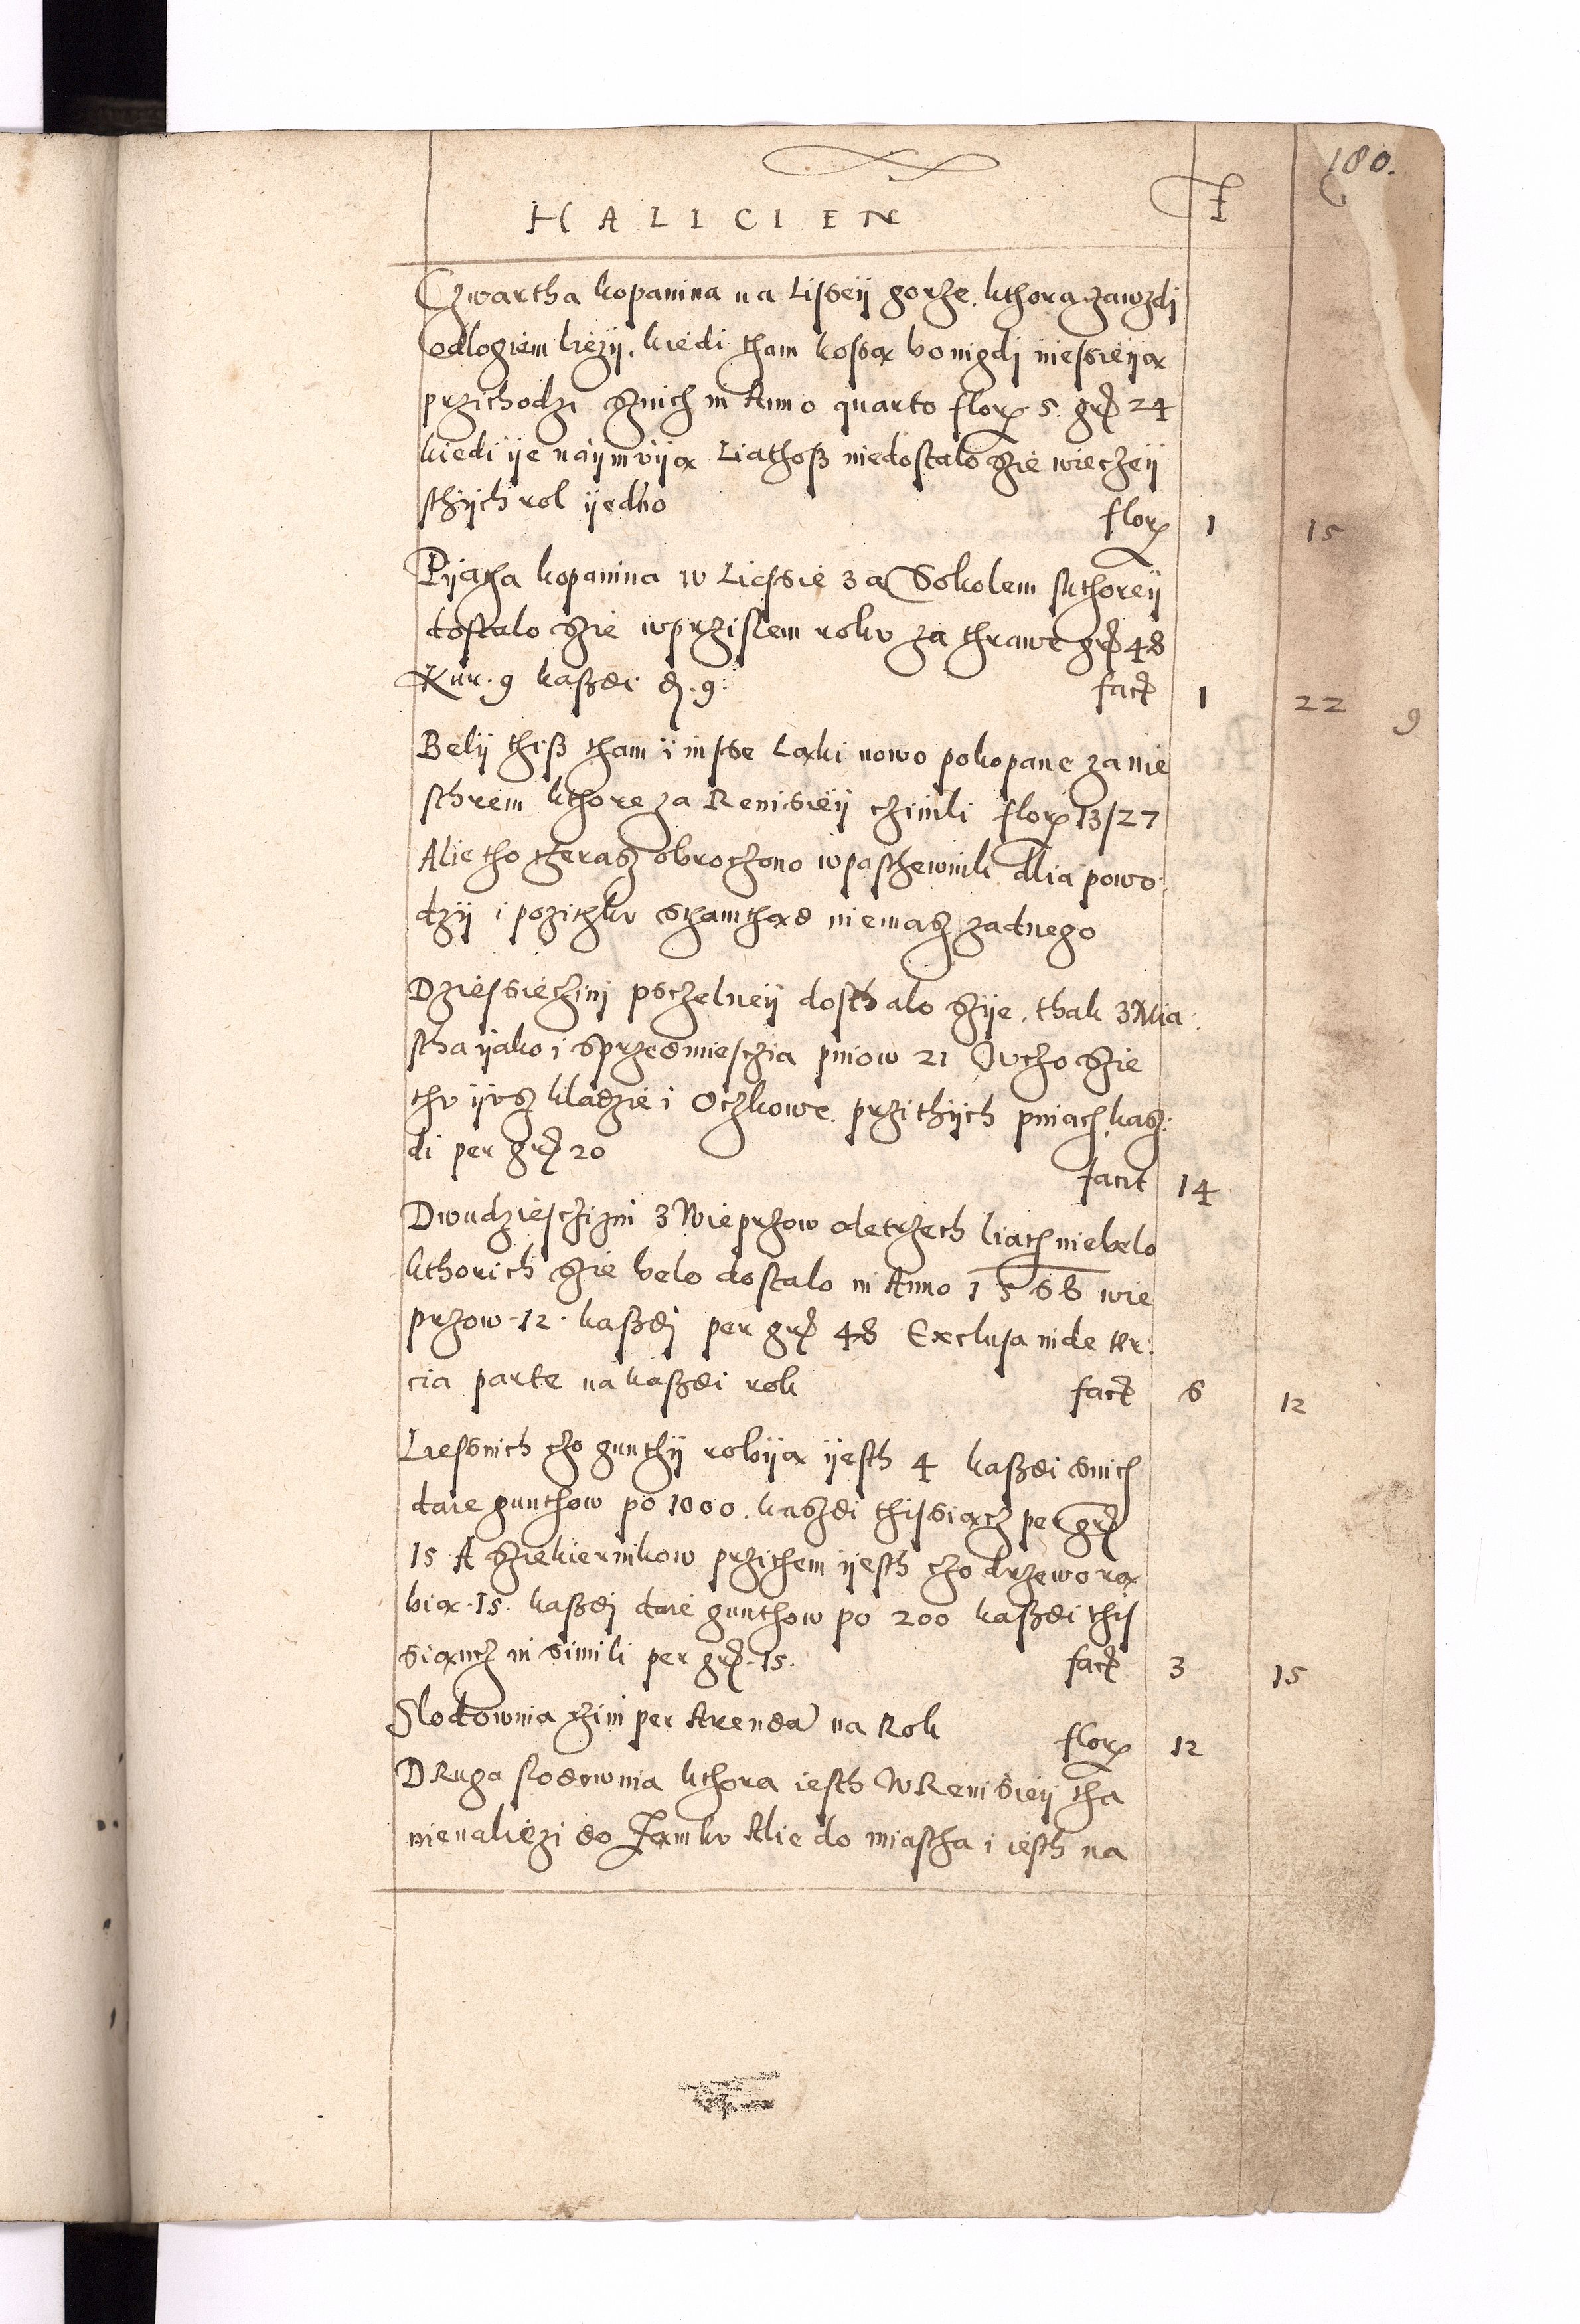 180.
HALICIEN F
Czwartha kopanina na Lissey gorze, kthora zawzdi
odlogiem liezy, kiedi tham kossą bo nigdj niessieyą
przichodzi znich in Anno quarto flor 5. gr 24
kiedi ye naymuyą Liathoß niedostalo szie wieczey
sthych rol yedno flor 1 15
Pyatha kopanina w Liessie za Sokolem skthorey
dostalo szie wprzislem roku za thrawe gr 48
Kur. 9 kaßdi d. 9. fact 1 22 9
Beli thiß tham i insse Ląki nowo pokopane za nie
sthrem kthore za Renisiey czinili flor 13/27
Alie tho theras obroczono w pasthewnik dlia powo
dzy i pozithku sthamthąd niemasz zadnego
Dziessieczini psczelney dosthalo szye, thak z Mia
stha yako i sprzedmiesczia pniow 21 Wczo szie
thu yusz kladzie i Oczkowe, przithych pniach kasz
di per gr 20 facit 14
Dwudziesczizni z Wieprzow odetrzech liath niebelo
kthorich szie belo dostalo in Anno 1566 wie
przow 12. kaßdj per gr 48 Exclusa inde ter
cia parte na kaßdi rok fact 6 12
Liesnich czo gunthy robyą yesth 4 kaßdi snich
daie gunthow po 1000. kaszdi thissiącz per gr
15 A siekiernikow przithem yesth czo drzewo rą
bią 15. kaßdj daie gunthow po 200 kaßdi this
siąncz in simili per gr 15. fact 3 15
Slodownia czini per Arenda na Rok flor 12
Druga slodownia kthora iesth W Renisiey tha
nienaliezi do Zamku Alie do miastha i iesth na